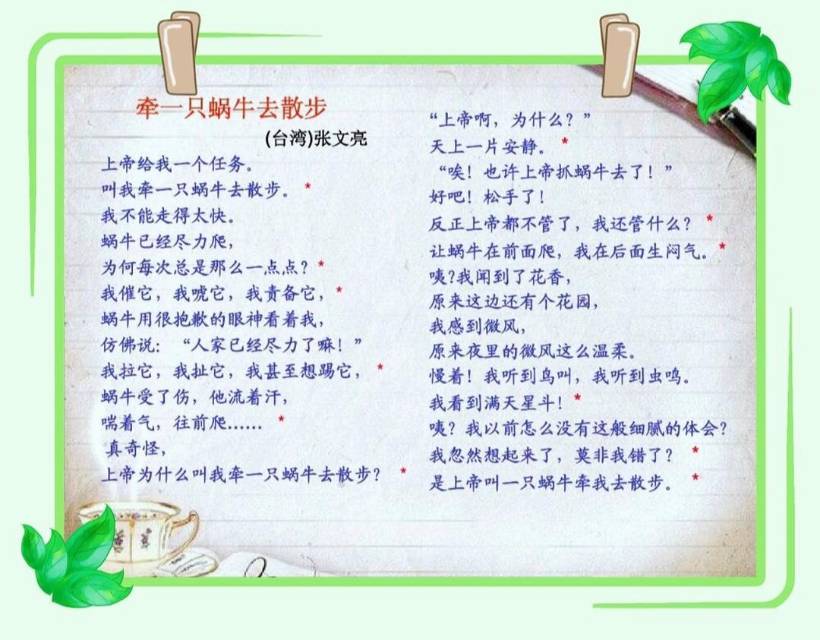 牵一只蜗牛去散步
(台湾)张文亮
上帝给我一个任务。
叫我牵一只蜗牛去散步。 *
我不能走得太快。
蜗牛已经尽力爬，
为何每次总是那么一点点？*
我催它，我唬它，我责备它，*
蜗牛用很抱歉的眼神看着我，
仿佛说：“人家已经尽力了嘛！”
我拉它，我扯它，我甚至想踢它， *
蜗牛受了伤，他流着汗，
喘着气，往前爬…… *
真奇怪，
上帝为什么叫我牵一只蜗牛去散步？ *
“上帝啊，为什么？”
天上一片安静。 *
“唉！也许上帝抓蜗牛去了！”
好吧！松手了！
反正上帝都不管了，我还管什么？ *
让蜗牛在前面爬，我在后面生闷气。*
咦?我闻到了花香，
原来这边还有个花园，
我感到微风，
原来夜里的微风这么温柔。
慢着！我听到鸟叫，我听到虫鸣。
我看到满天星斗！*
咦？我以前怎么没有这般细腻的体会？
我忽然想起来了，莫非我错了？ *
是上帝叫一只蜗牛牵我去散步。 *